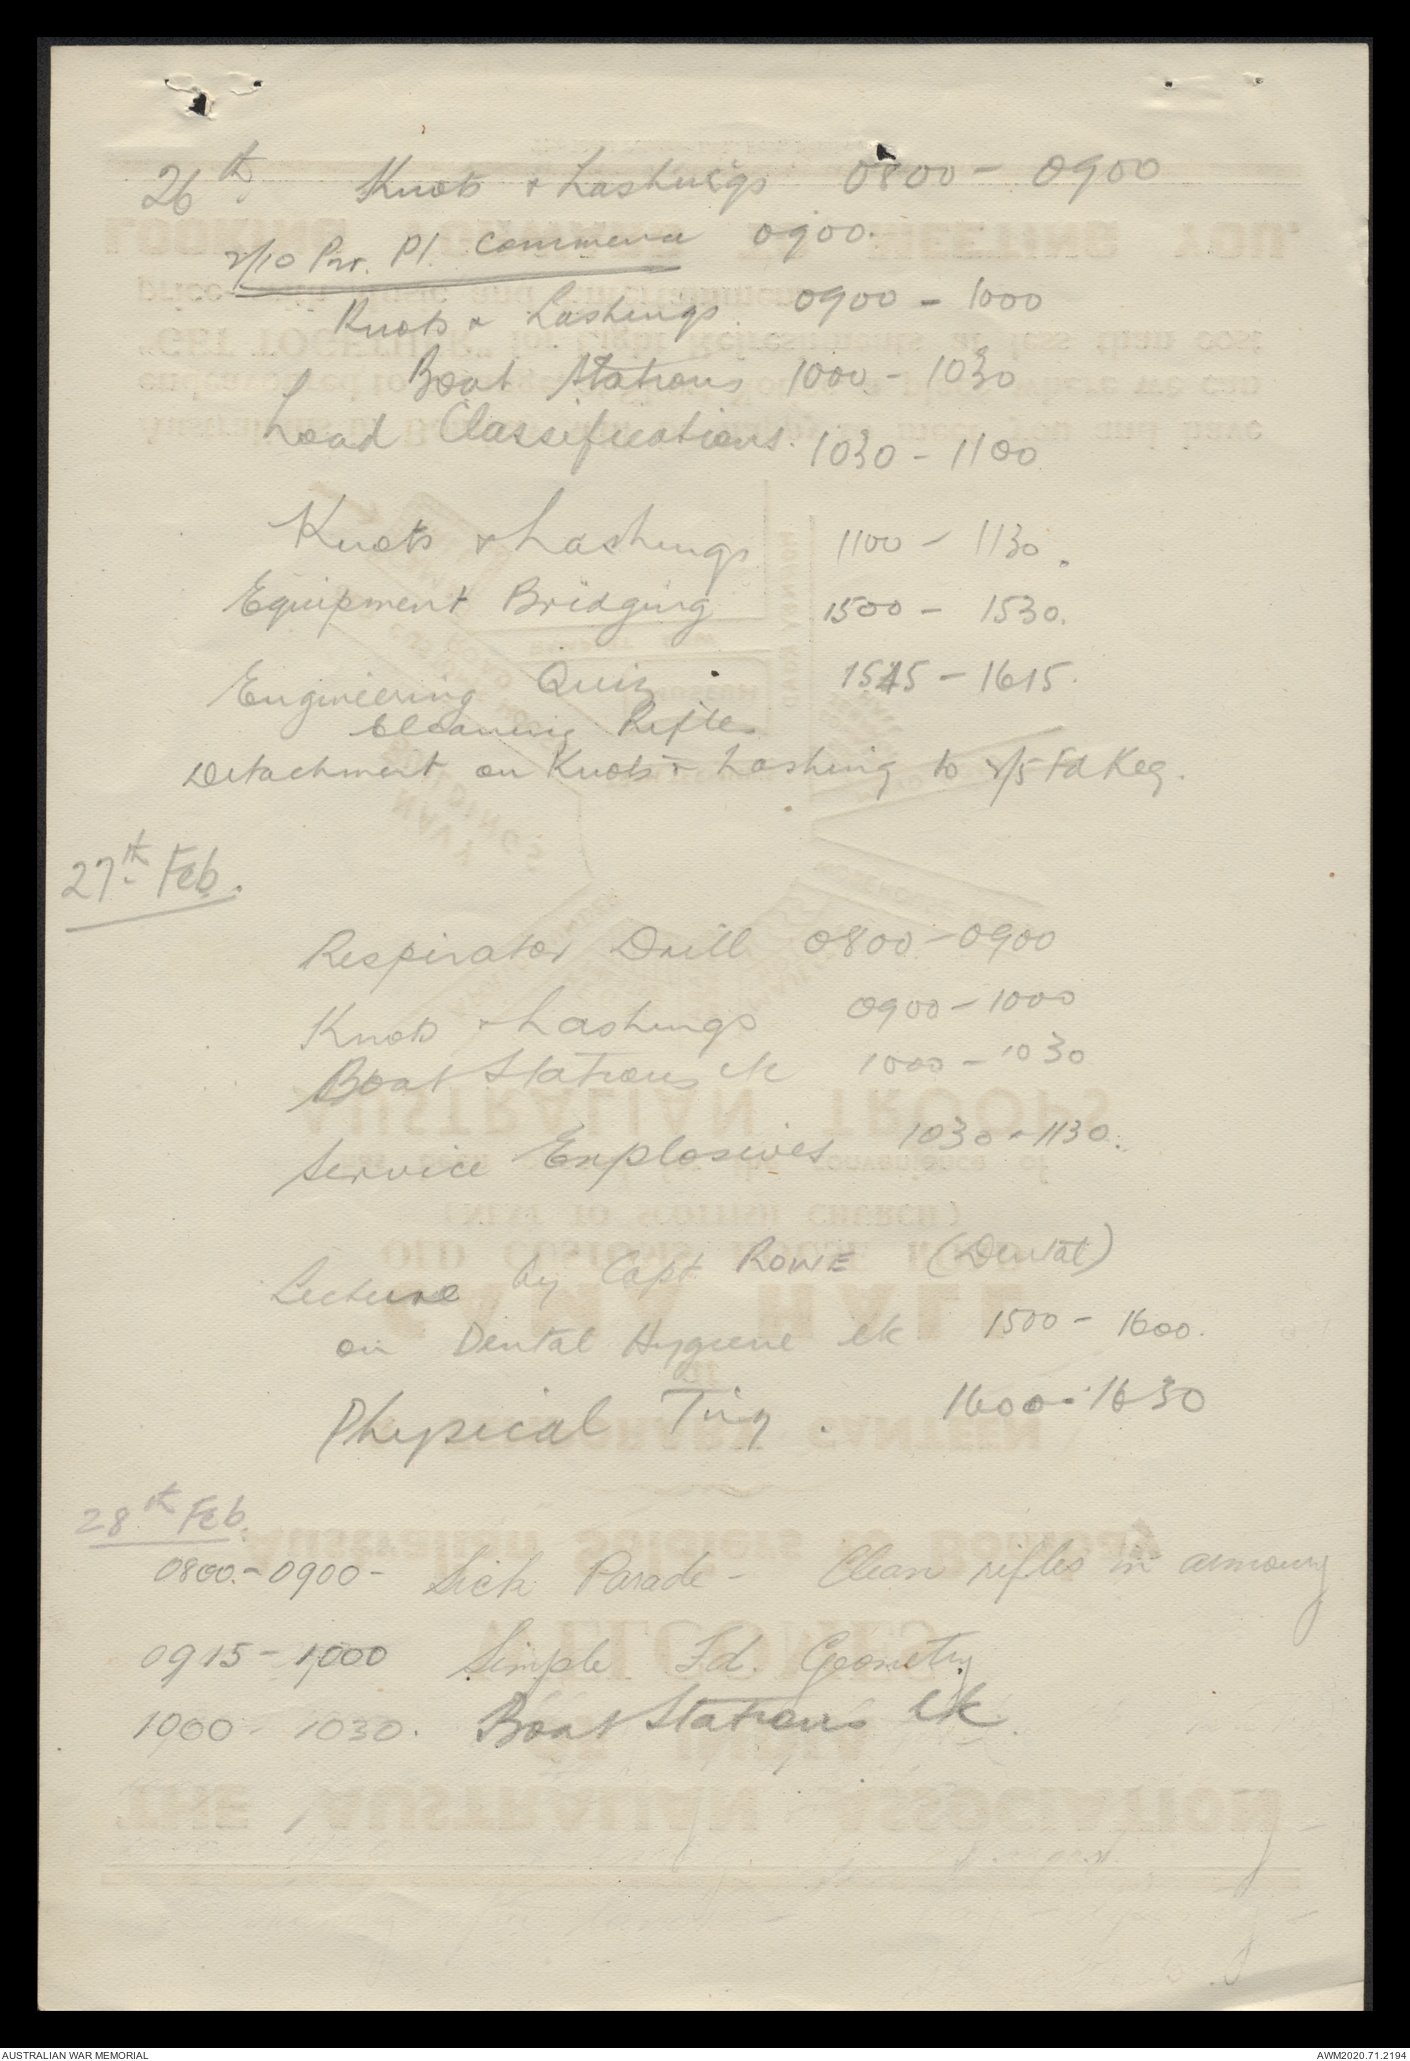 26th Knots & Lashings 0800 - 0900
2/10 Pnr. Pl. Commence 0900.
Knots & Lashings 0900 - 1000
Boat Stations 1000 - 1030
Load Classifications. 1030 - 1100
Knots & Lashings 1100 - 1130.
Equipment Bridging 1500 - 1530.
Engineering Quiz 1545 - 1615.
Cleaning Rifles
Detachment on Knots & Lashing to 2/5 Fd Reg.
27th Feb.
Respirator Drill 0800 - 0900
Knots & Lashings 0900 - 1000
Boat Stations etc 1000 - 1030
Service Explosives 1030 - 1130.
Lecture by Capt ROWE (Dental)
on Dental Hygiene etc 1500 - 1600.
Physical Tng. 1600 - 1630
28th Feb.
0800. - 0900 - Sick Parade - Clean rifles in armoury
0915 - 1000 Simple Fd. Geometry
1000 - 1030. Boat Stations etc.
AUSTRALIAN WAR MEMORIAL
AWM2020.71.2194